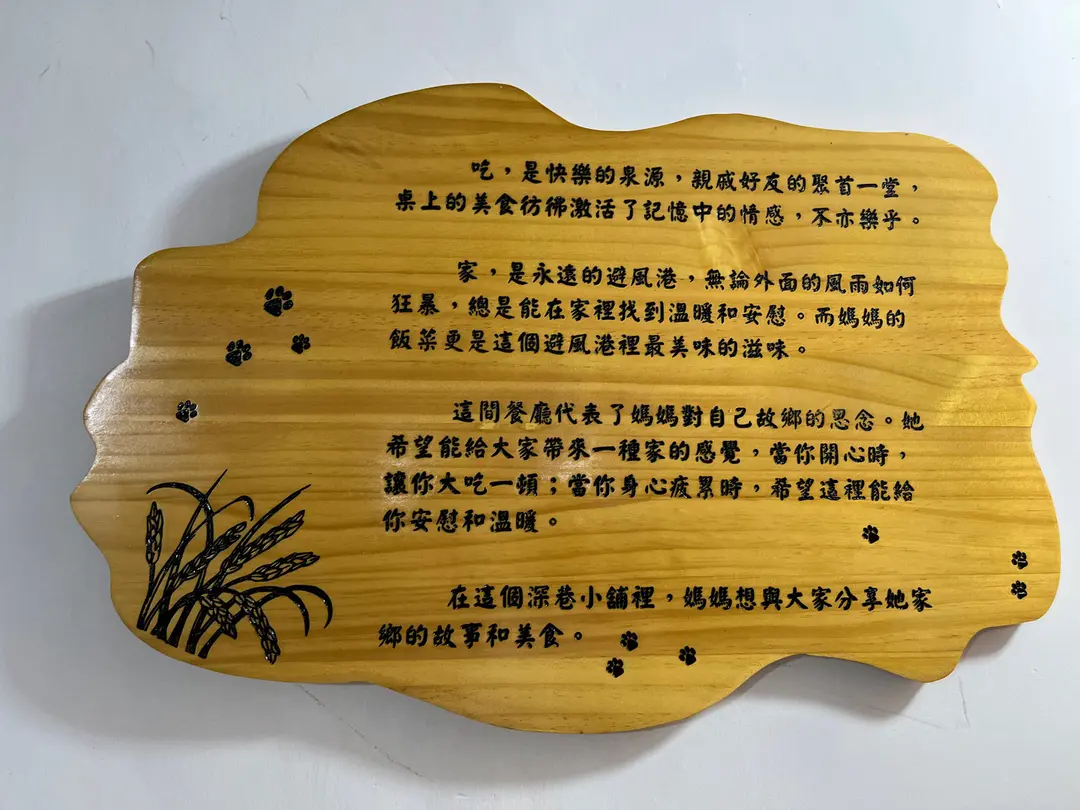 吃，是快樂的泉源，親戚好友的聚首一堂，
桌上的美食彷彿激活了記憶中的情感，不亦樂乎。
家，是永遠的避風港，無論外面的風雨如何
狂暴，總是能在家裡找到溫暖和安慰。而媽媽的
飯菜更是這個避風港裡最美味的滋味。
這間餐廳代表了媽媽對自己故鄉的思念。她
希望能給大家帶來一種家的感覺，當你開心時，
讓你大吃一頓；當你身心疲累時，希望這裡能給
你安慰和溫暖。
在這個深巷小舖裡，媽媽想與大家分享她家
鄉的故事和美食。